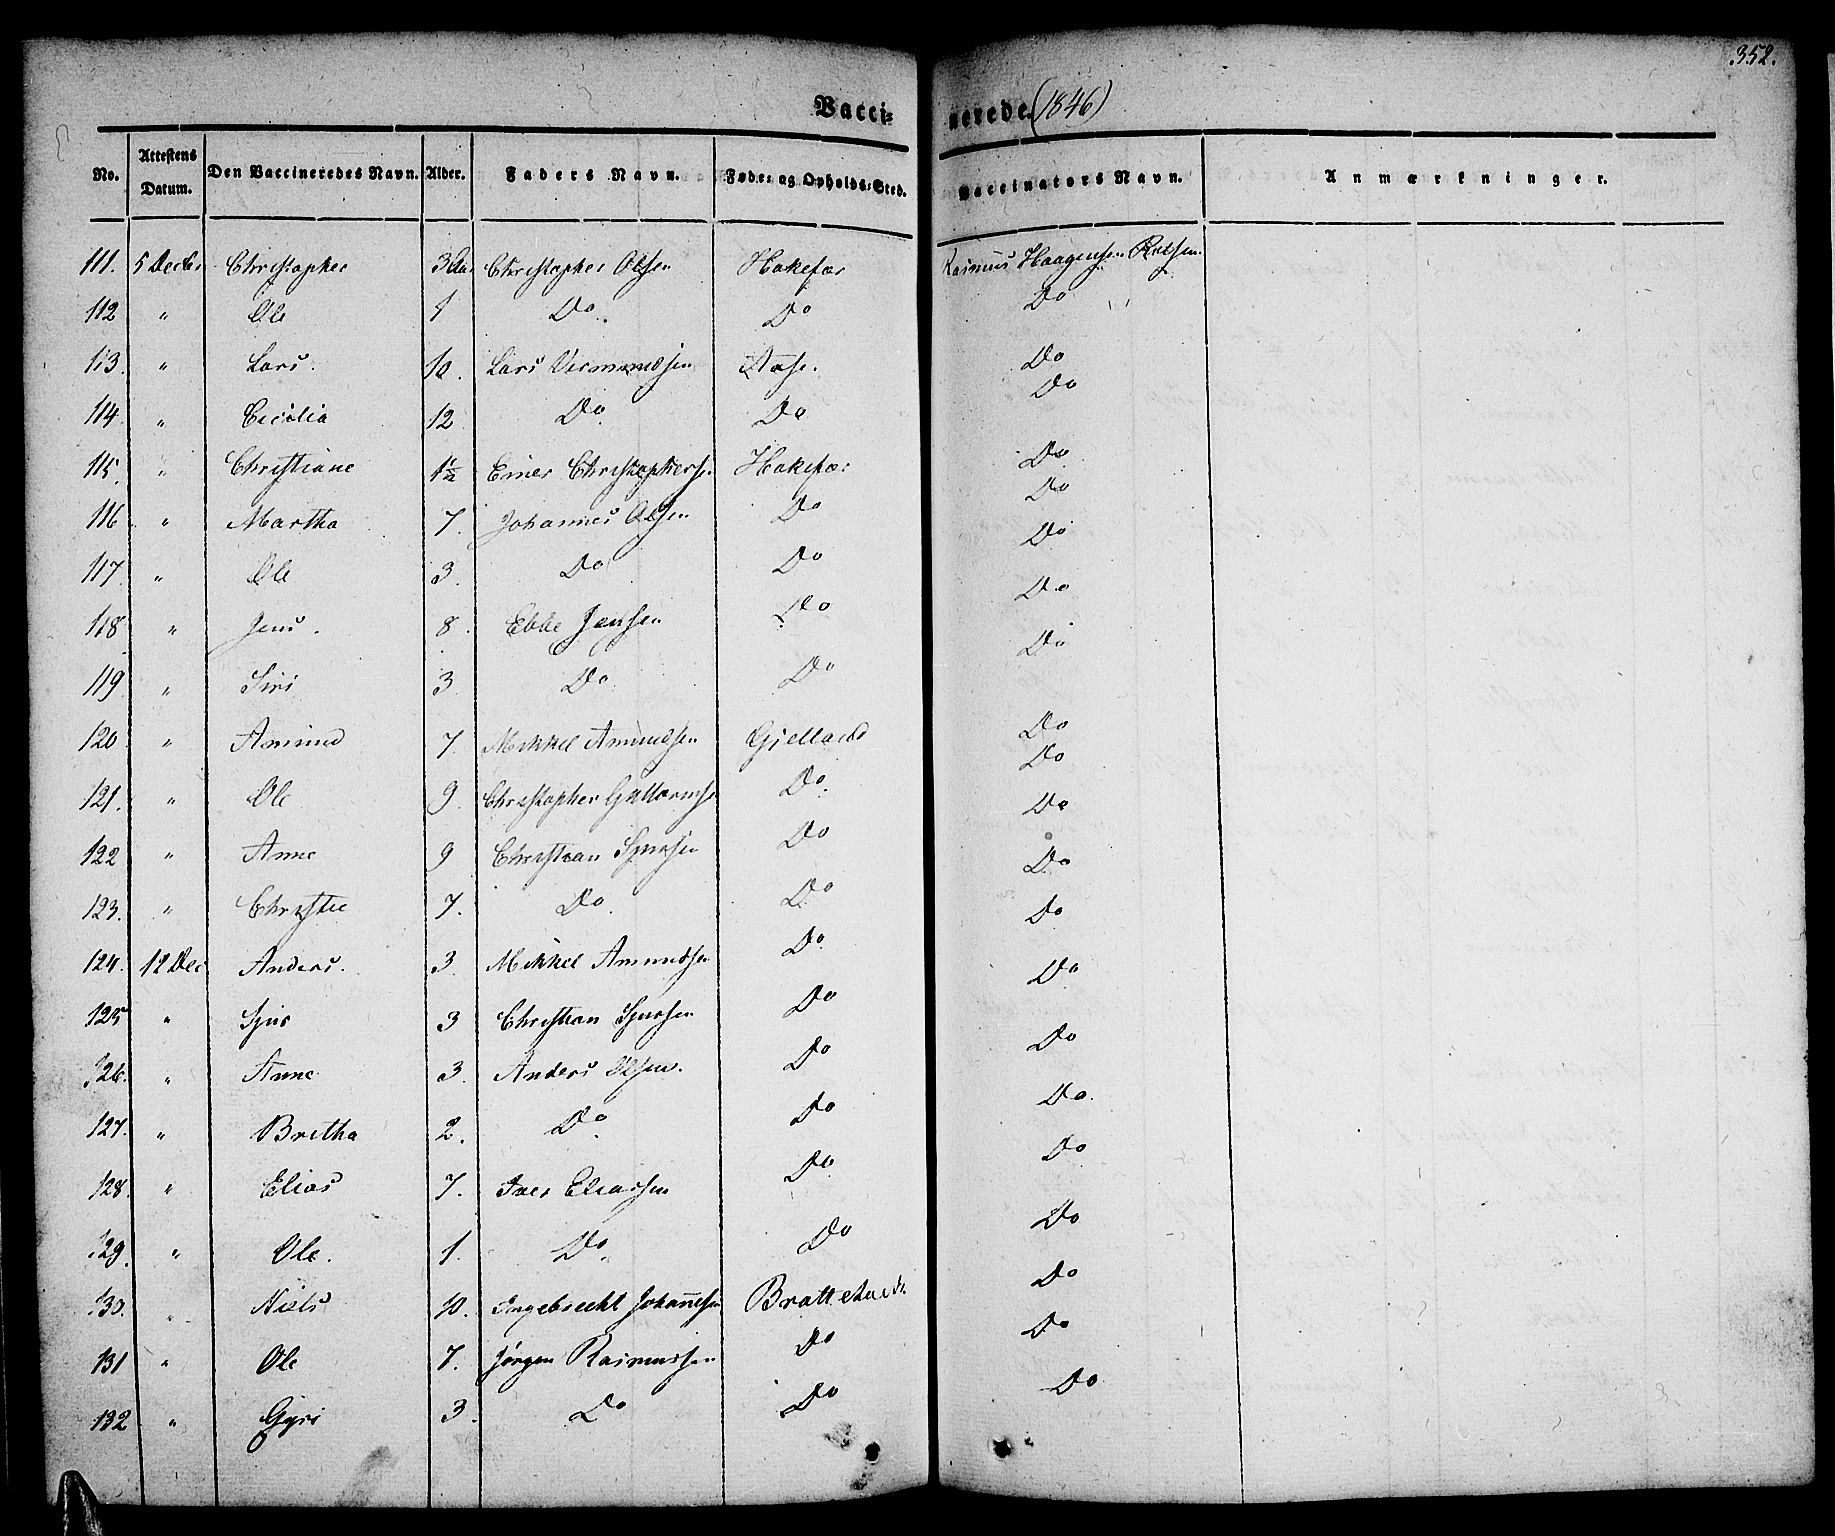 352.
Vaccinerede (1846)
No. Attestens Datum. Den Vaccineredes Navn. Alder. Faders Navn. Føde- og Opholds-Sted. Vaccinators Navn. Anmærkninger.
111. 5 Decbr Christopher 3 Aar Christopher Olsen Hokefar Rasmus Haagensen
112 " Ole 1 Do. Do Do
113. " Lars. 10. Lars Vermundsen Aase. Do
114. " Cicilia 12 Do. Do. Do
115. " Christiane 1½ Einer Christophersen Hokefar Do.
116 " Martha 7. Johannes Olsen Do Do
117. " Ole 3. Do Do Do
118. " Jens. 8. Ebbe Jensen Do Do
119. " Siri 3 Do Do Do
120 " Amund 7. Mikkel Amundsen Gielland Do
121. " Ole 9. Christopher Guttormsen Do. Do
122 " Anne 9 Christian Sjursen Do Do
123. " Christie 7. Do. Do Do
124. 12 Dec Anders. 3. Mikkel Amundsen Do Do
125 " Sjur 3 Christian Sjursen Do Do
126. " Anne 3. Anders Olsen. Do Do
127. " Britha 2. Do. Do Do.
128. " Elias 7. Iver Eliassen Do Do
129. " Ole. 1. Do. Do Do
130. " Niels 10. Ingebrecht Johannesen Do
131 " Ole 7. Jørgen Rasmussen Do Do
132 " Gyri 3. Do Do Do